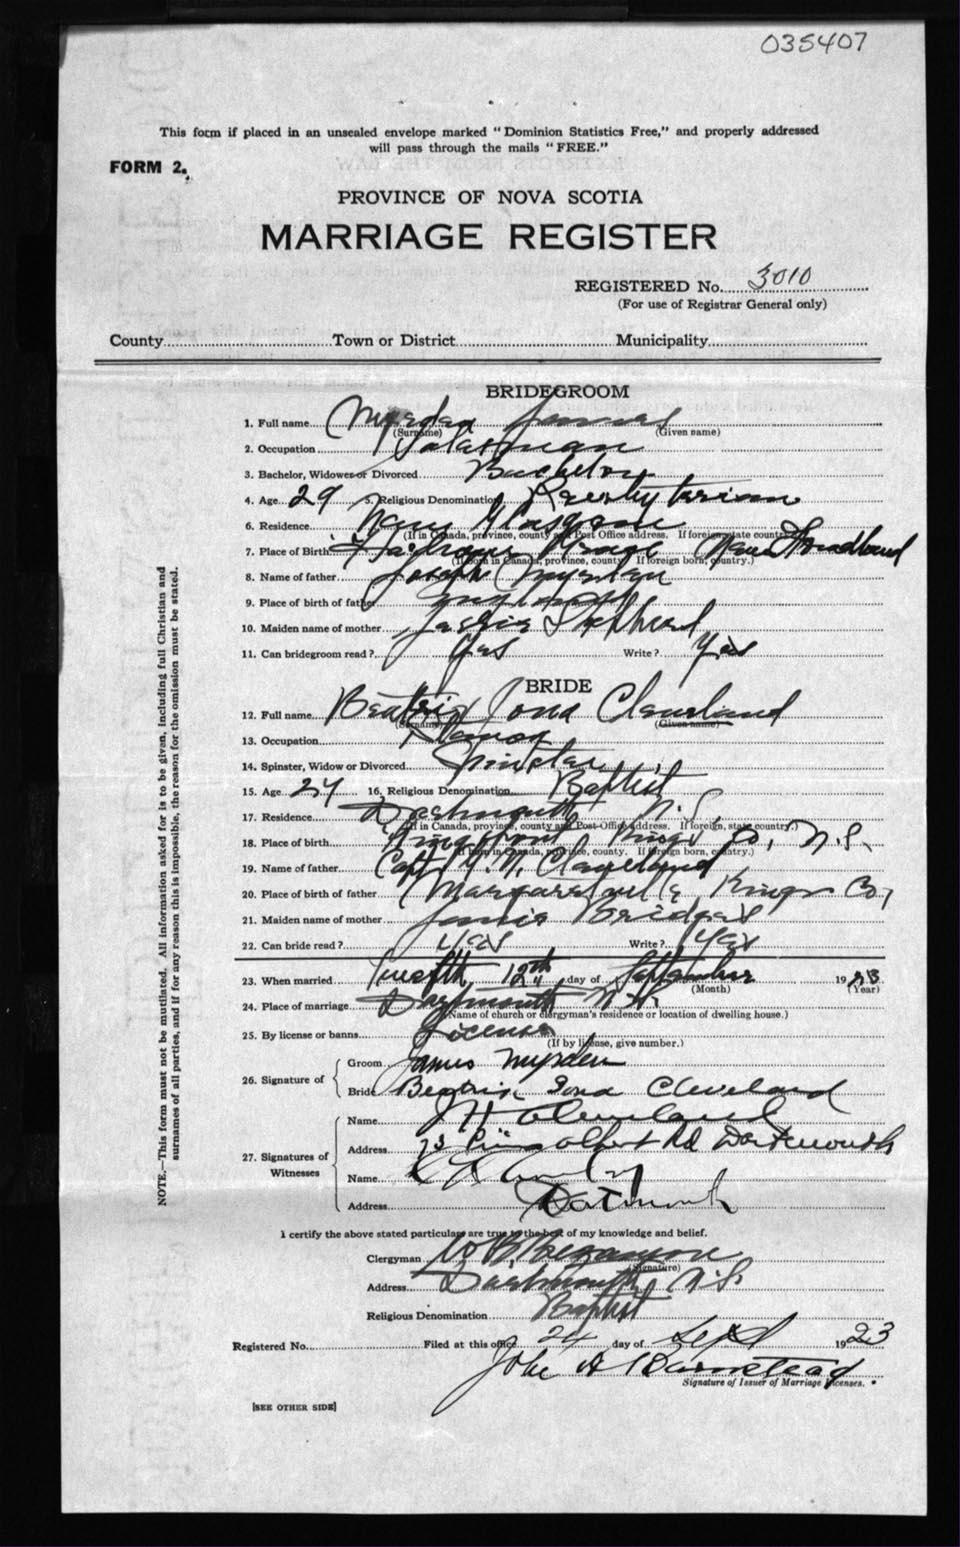 035407
This form if placed in an unsealed envelope marked "Dominion Statistics Free," and properly addressed
will pass through the mails "FREE."
FORM 2.
PROVINCE OF NOVA SCOTIA
MARRIAGE REGISTER
REGISTERED No. 3010
(For use of Registrar General only)
County Town or District Municipality
BRIDEGROOM
1. Full name Myrden James
(Surname) (Given name)
2. Occupation Salesman
3. Bachelor, Widower or Divorced Bachelor
4. Age 29 5. Religious Denomination Presbyterian
6. Residence New Glasgow
(If in Canada, province, county and Post Office address. If foreign state country.)
7. Place of Birth Harbour Grace New Foundland
(If born in Canada, province, county. If foreign born, country.)
8. Name of father Joseph Myrden
9. Place of birth of father England
10. Maiden name of mother Shephard
11. Can bridegroom read? Yes Write? Yes
BRIDE
12. Full name Beatrix Iona Cleveland
(Surname) (Given name)
13. Occupation
14. Spinster, Widow or Divorced Spinster
15. Age 24 16. Religious Denomination Baptist
17. Residence Dartmouth N.S.
(If in Canada, province, county and Post Office address. If foreign, state country.)
18. Place of birth Kings Co, N.S.
(If born in Canada, province, county. If foreign born, country.)
19. Name of father Capt. Cleveland
20. Place of birth of father Margaretville Kings Co,
21. Maiden name of mother Bridges
22. Can bride read? Yes Write? Yes
23. When married Twelfth 12th day of September 1923
(Month) (Year)
24. Place of marriage Dartmouth N.S.
(Name of church or clergyman's residence or location of dwelling house.)
25. By license or banns License
(If by license, give number.)
26. Signature of
Groom James Myrden
Bride Beatrix Iona Cleveland
27. Signatures of Witnesses
Name H Cleveland
Address 73 Prince Albert Rd Dartmouth
Name
Address Dartmouth
I certify the above stated particulars are true to the best of my knowledge and belief.
Clergyman W B Bezanson
(Signature)
Address Dartmouth N.S.
Religious Denomination Baptist
Registered No. Filed at this office 24 day of Sept 1923
John A Barnstead
Signature of Issuer of Marriage Licenses.
[SEE OTHER SIDE]
NOTE.—This form must not be mutilated. All information asked for is to be given, including full Christian and
surnames of all parties, and if for any reason this is impossible, the reason for the omission must be stated.